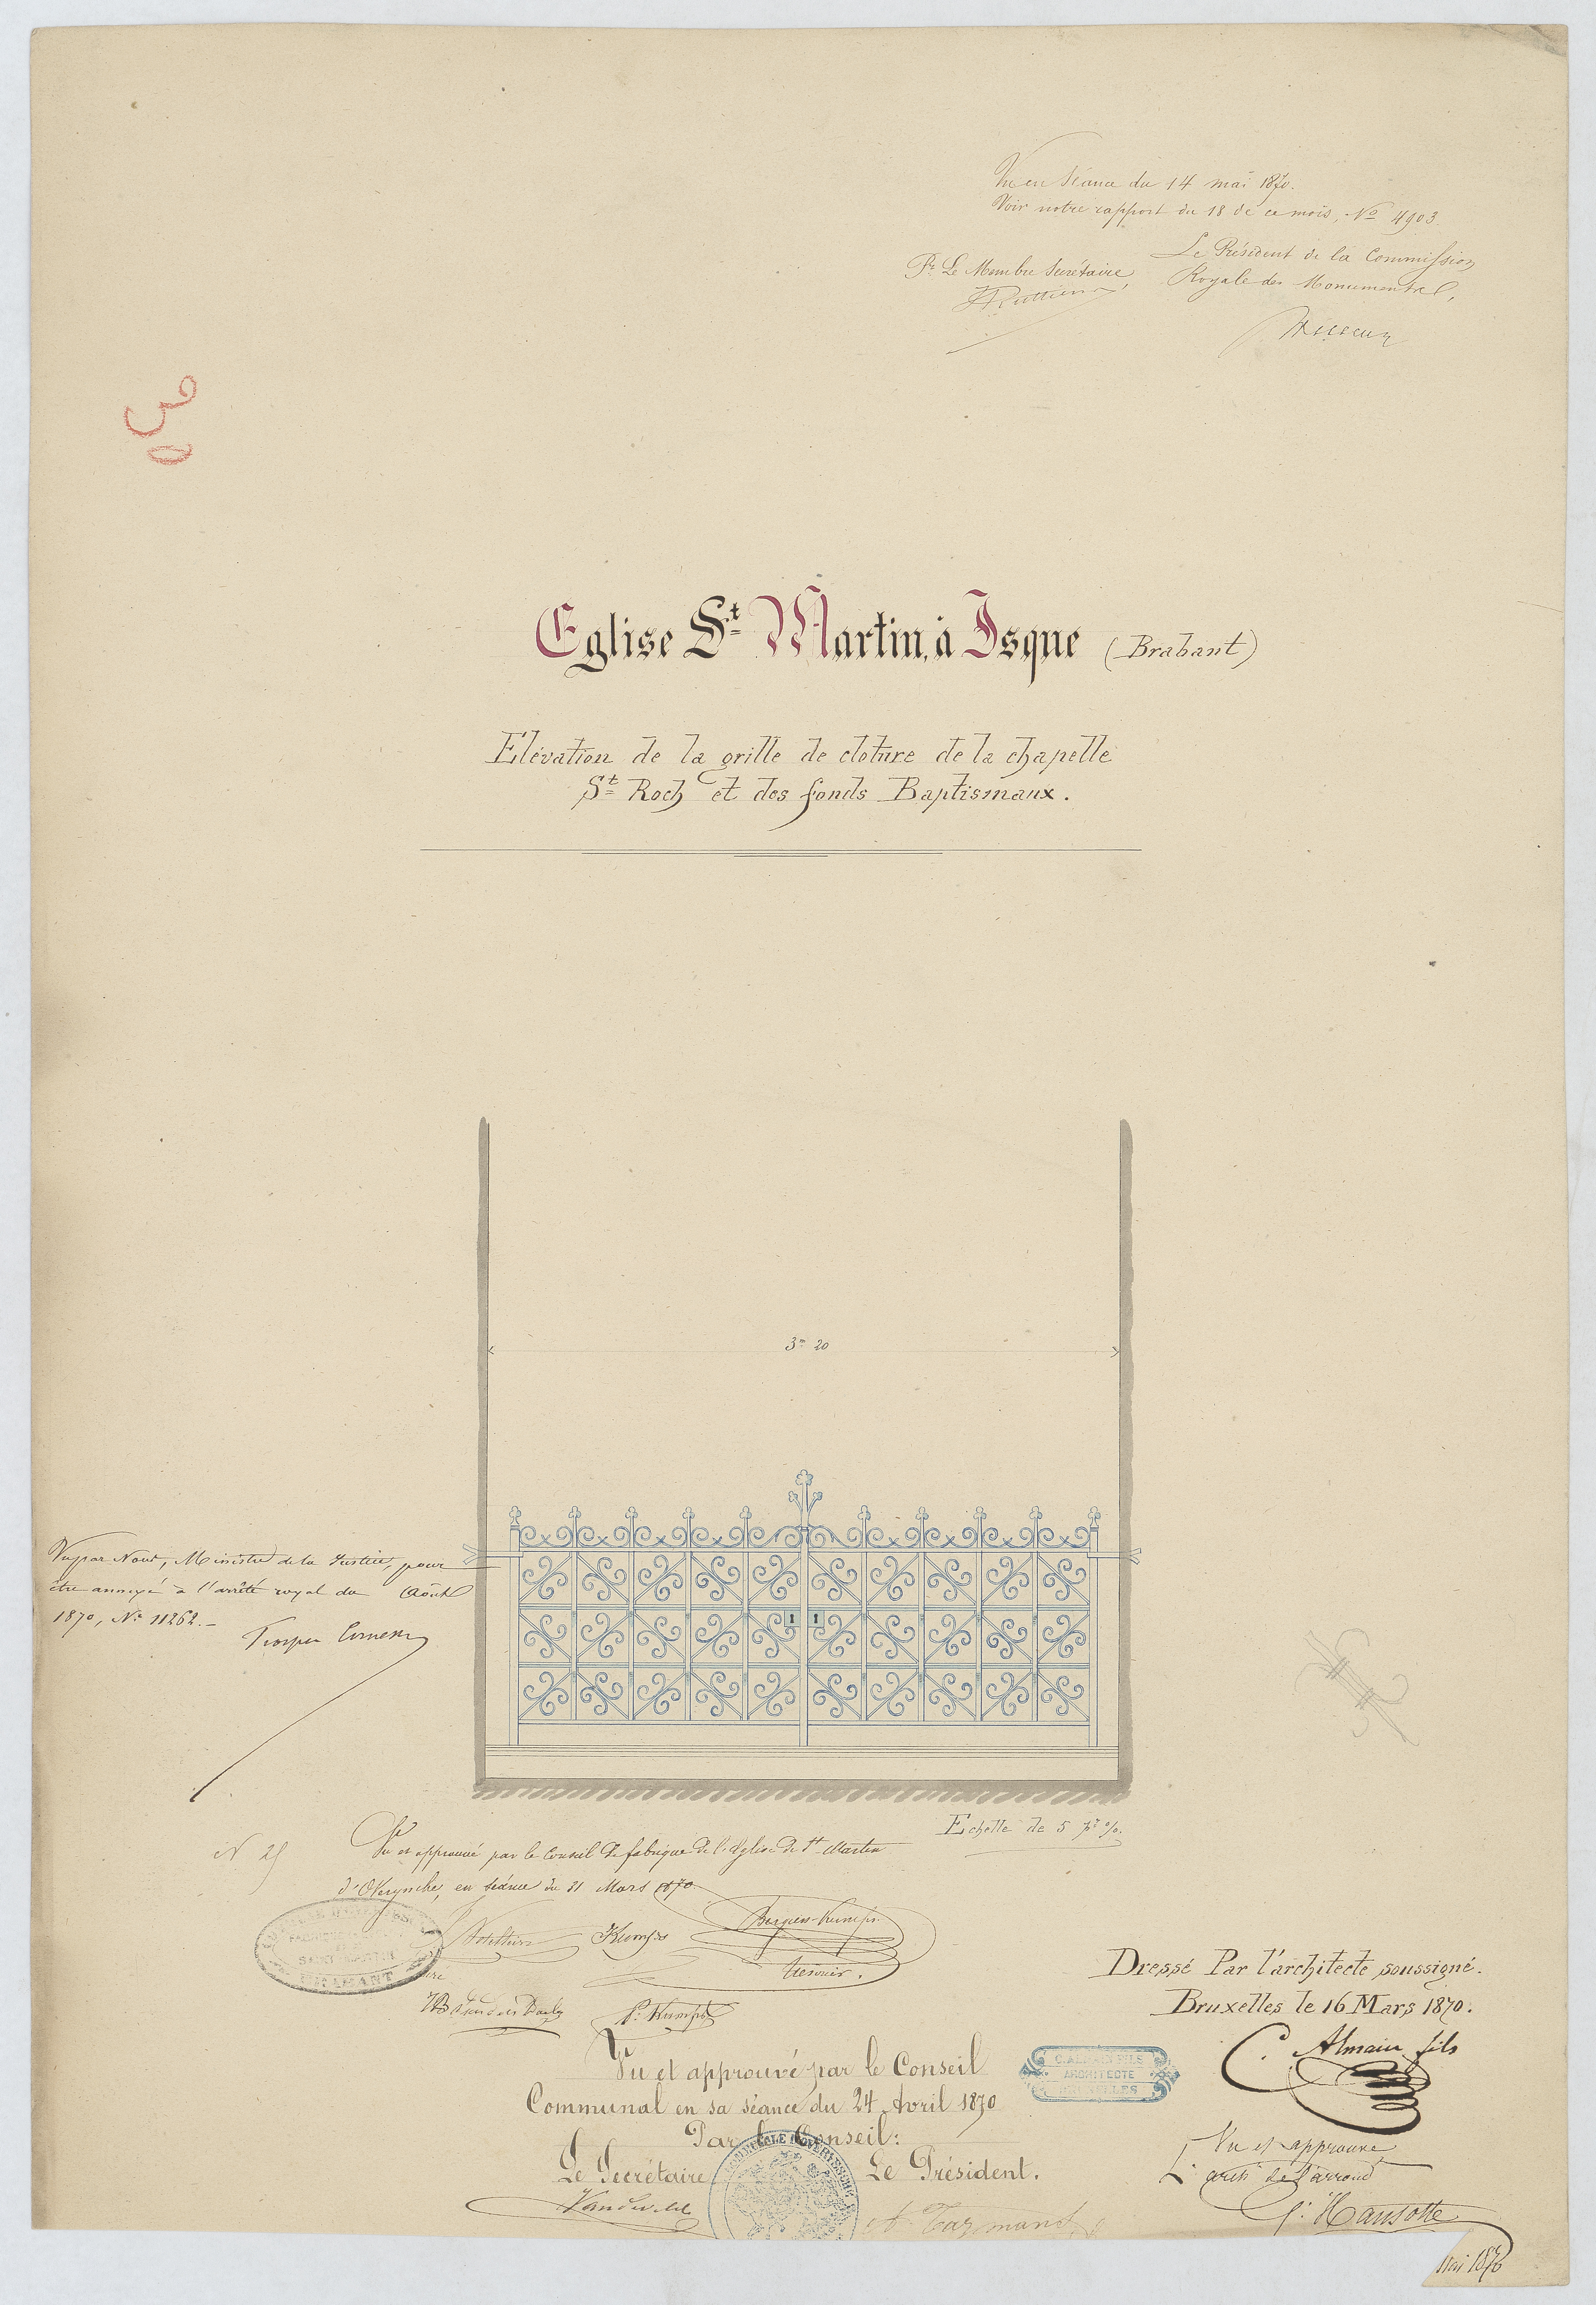 Vu en séance du 14 mai 1870.
Voir notre rapport du 18 de ce mois, No 4903.
Pr. Le Membre Secrétaire,
Le Président de la Commission
Royale des Monuments,
Eglise St Martin, à Isque (Brabant)
Elévation de la grille de cloture de la chapelle
St Roch et des fonds Baptismaux.
3m 20
Vu par Nous, Ministre de la Justice, pour
être annexé à l'arrêté royal du Août
1870, No 11262.-
Echelle de 5 pr %.
Vu et approuvé par le Conseil de fabrique de l'Eglise de St Martin
d'Overyssche, en séance du 31 Mars 1870
SAINT MARTIN
BRABANT
Trésorier.
Dressé Par l'architecte soussigné.
Bruxelles le 16 Mars 1870.
C. Almain fils
C. ALMAIN FILS
ARCHITECTE
BRUXELLES
Vu et approuvé par le Conseil
Communal en sa séance du 24 Avril 1870
Par le Conseil:
Le Secrétaire
Le Président.
Vu et approuvé
L'arch de l'arrond
Hansotte
Mai 1870